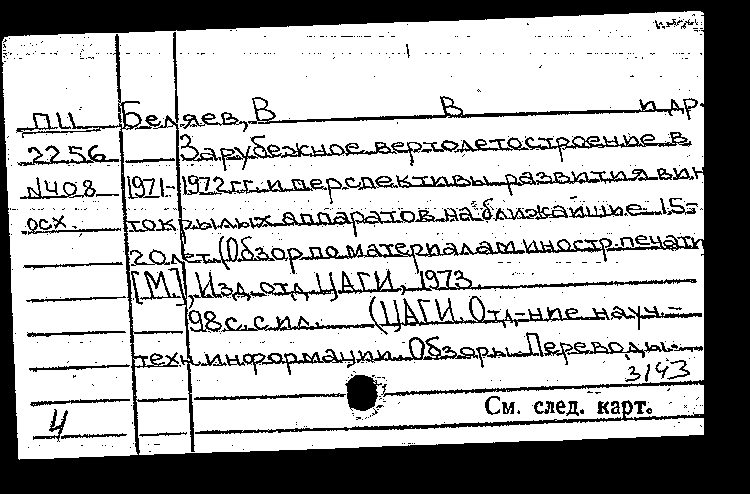 ПЦ Беляев, В В и др.
2256 Зарубежное вертолетостроение в
N408 1971-1972 гг. и перспективы развития вин
осх. токрылых аппаратов на ближайшие 15-
20 лет. (Обзор по материалам иностр. печати
[М.], Изд. отд. ЦАГИ, 1973.
98 с. с ил. (ЦАГИ. Отд-ние науч.-
техн. информации. Обзоры. Переводы.
3143
См. след. карт.
4